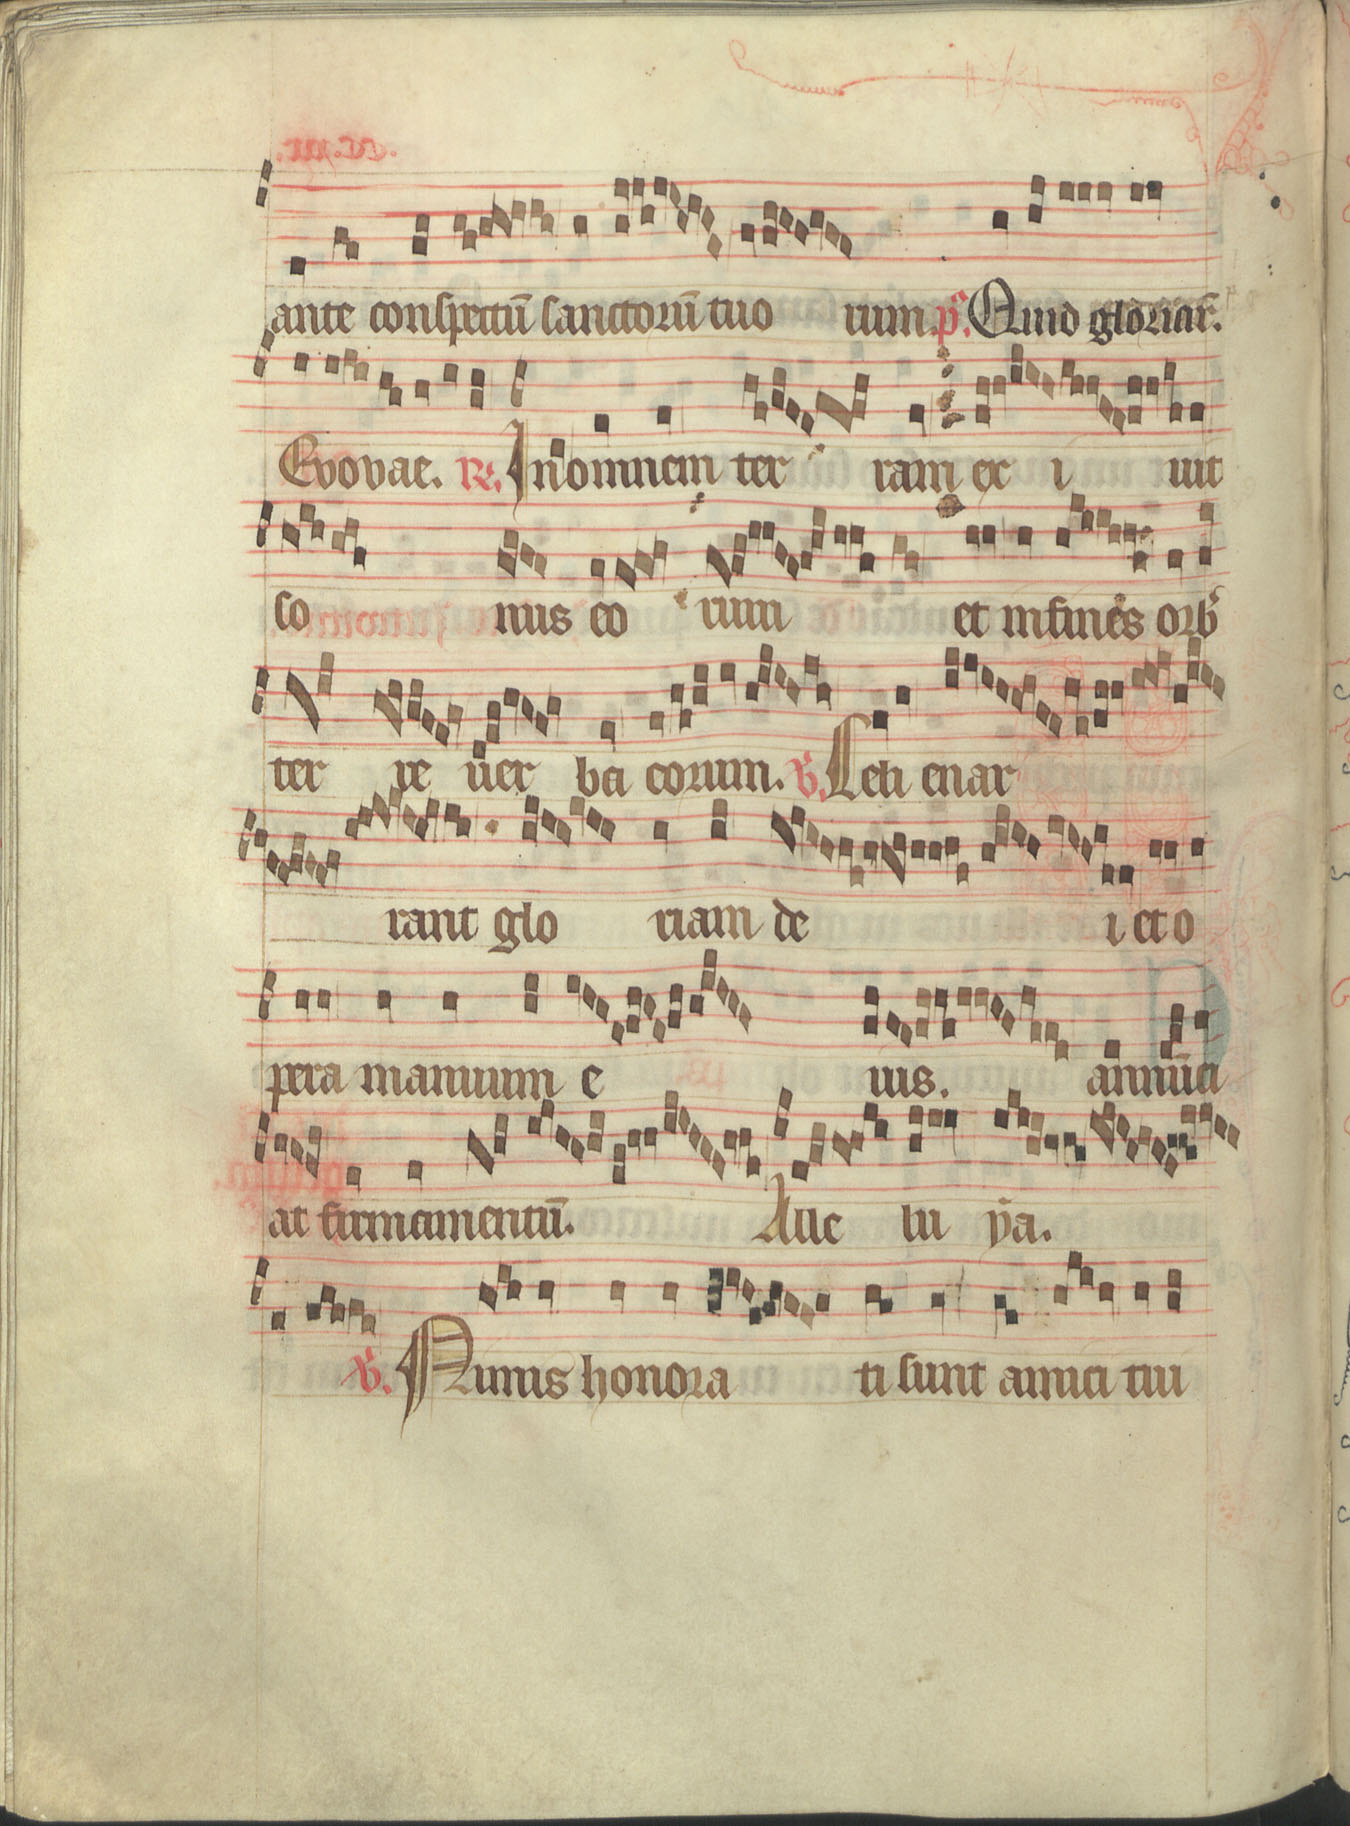 ante conspectū sanctorū tuo rum. p̄s. Quid gloriar̄.
Evovae. R. In omnem ter ram ex i uit
so nus eo rum et in fines orb̄
ter re uer ba eorum. V. Celi enar
rant glo riam de i et o
pera manuum e ius. annūci
at firmamentū. Alle lu ẏa.
V. Nimis honora ti sunt amici tui